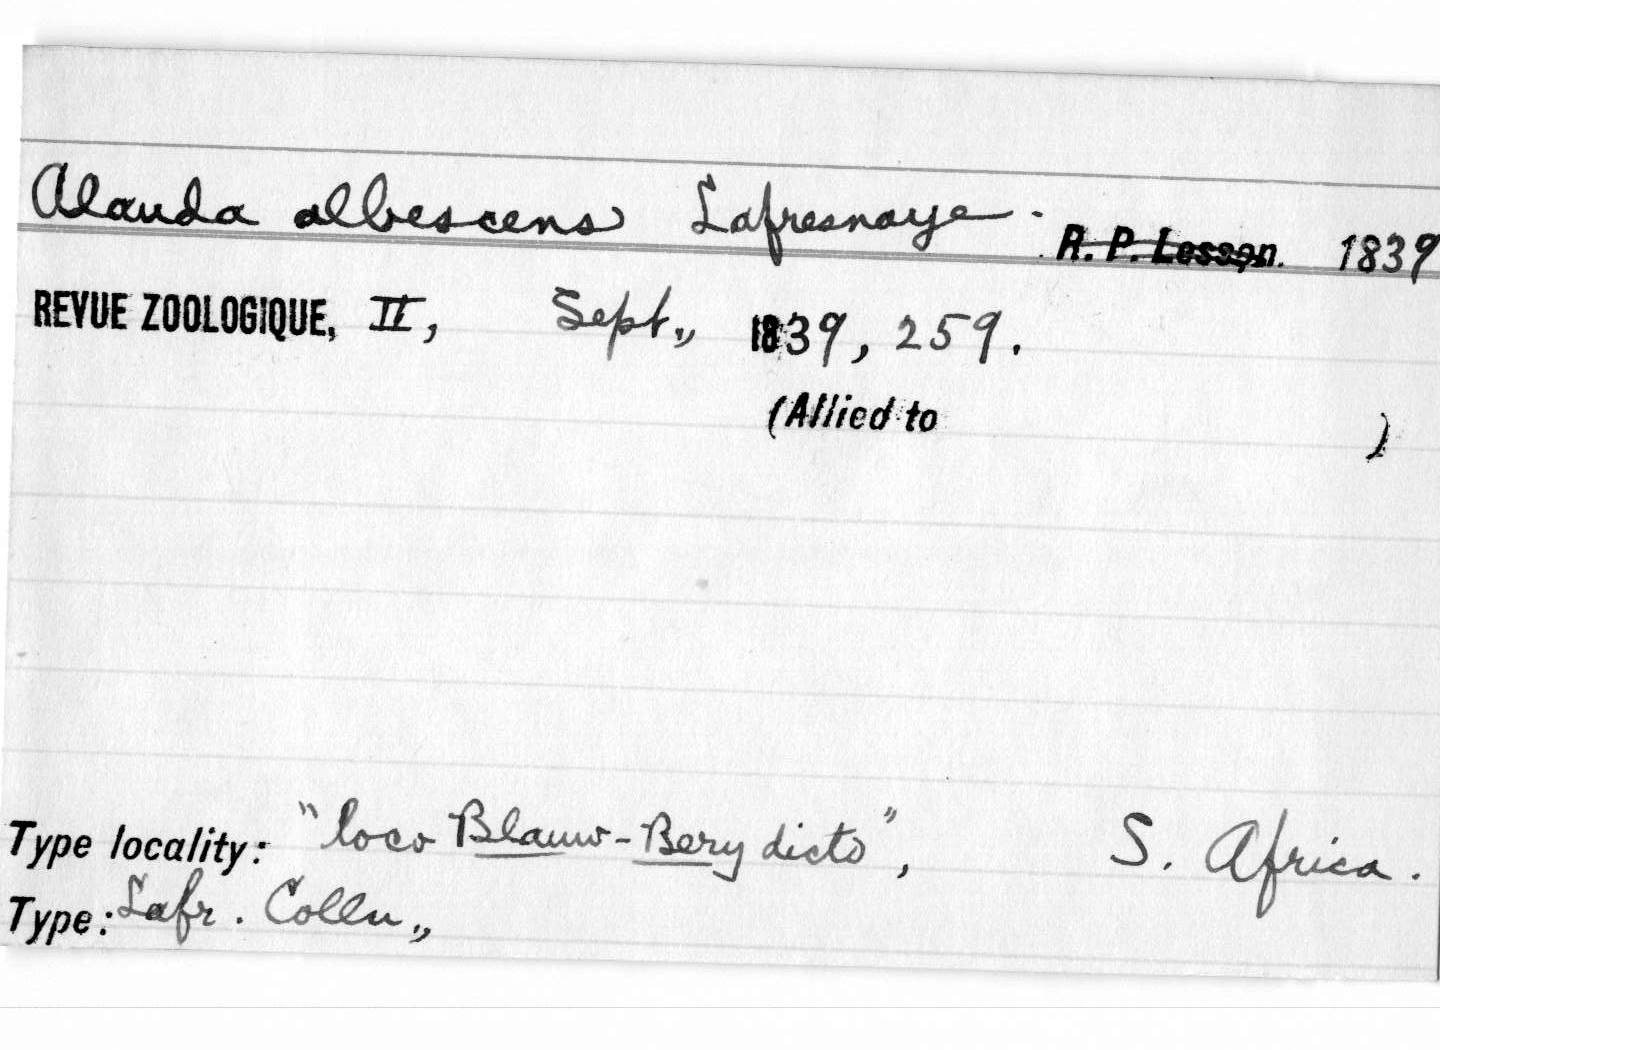 Alauda albescens Lafresnaye. R. P. Lesson. 1839
REVUE ZOOLOGIQUE, II, Sept., 1839, 259.
(Allied to )
Type locality: "loco Blauw-Bery dicto", S. Africa.
Type: Lafr. Colln.,